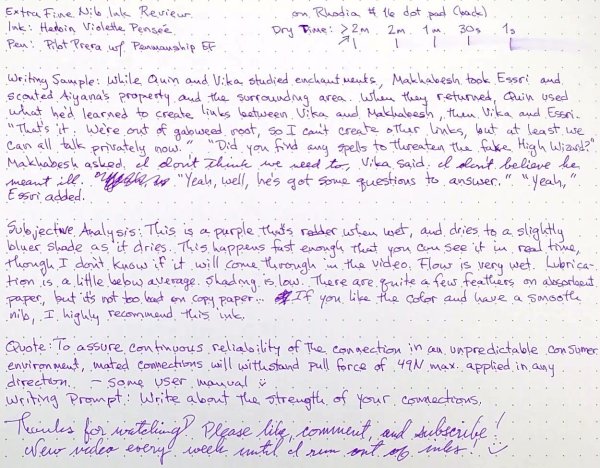 Extra Fine Nib Ink Review on Rhodia #16 dot pad (back)
Ink: Herbin Violette Pensée Dry Time: >2m 2m 1m 30s 1s
Pen: Pilot Prera w/ Penmanship EF
Writing Sample: While Quin and Vika studied enchantments, Makhabesh took Essri and
scouted Aiyana's property and the surrounding area. When they returned, Quin used
what he'd learned to create links between Vika and Makhabesh, then Vika and Essri.
"That's it. We're out of gabweed root, so I can't create other links, but at least we
can all talk privately now." "Did you find any spells to threaten the fake High Wizard?"
Makhabesh asked. I don't think we need to, Vika said. I don't believe he
meant ill. "Yeah, well, he's got some questions to answer." "Yeah,"
Essri added.
Subjective Analysis: This is a purple that's redder when wet, and dries to a slightly
bluer shade as it dries. This happens fast enough that you can see it in real time,
though I don't know if it will come through in the video. Flow is very wet. Lubrica-
tion is a little below average. Shading is low. There are quite a few feathers on absorbent
paper, but it's not too bad on copy paper... If you like the color and have a smooth
nib, I highly recommend this ink.
Quote: To assure continuous reliability of the connection in an unpredictable consumer
environment, mated connections will withstand pull force of 49N max. applied in any
direction. – some user manual
Writing Prompt: Write about the strength of your connections.
Thanks for watching! Please like, comment, and subscribe!
New video every week until I run out of inks!